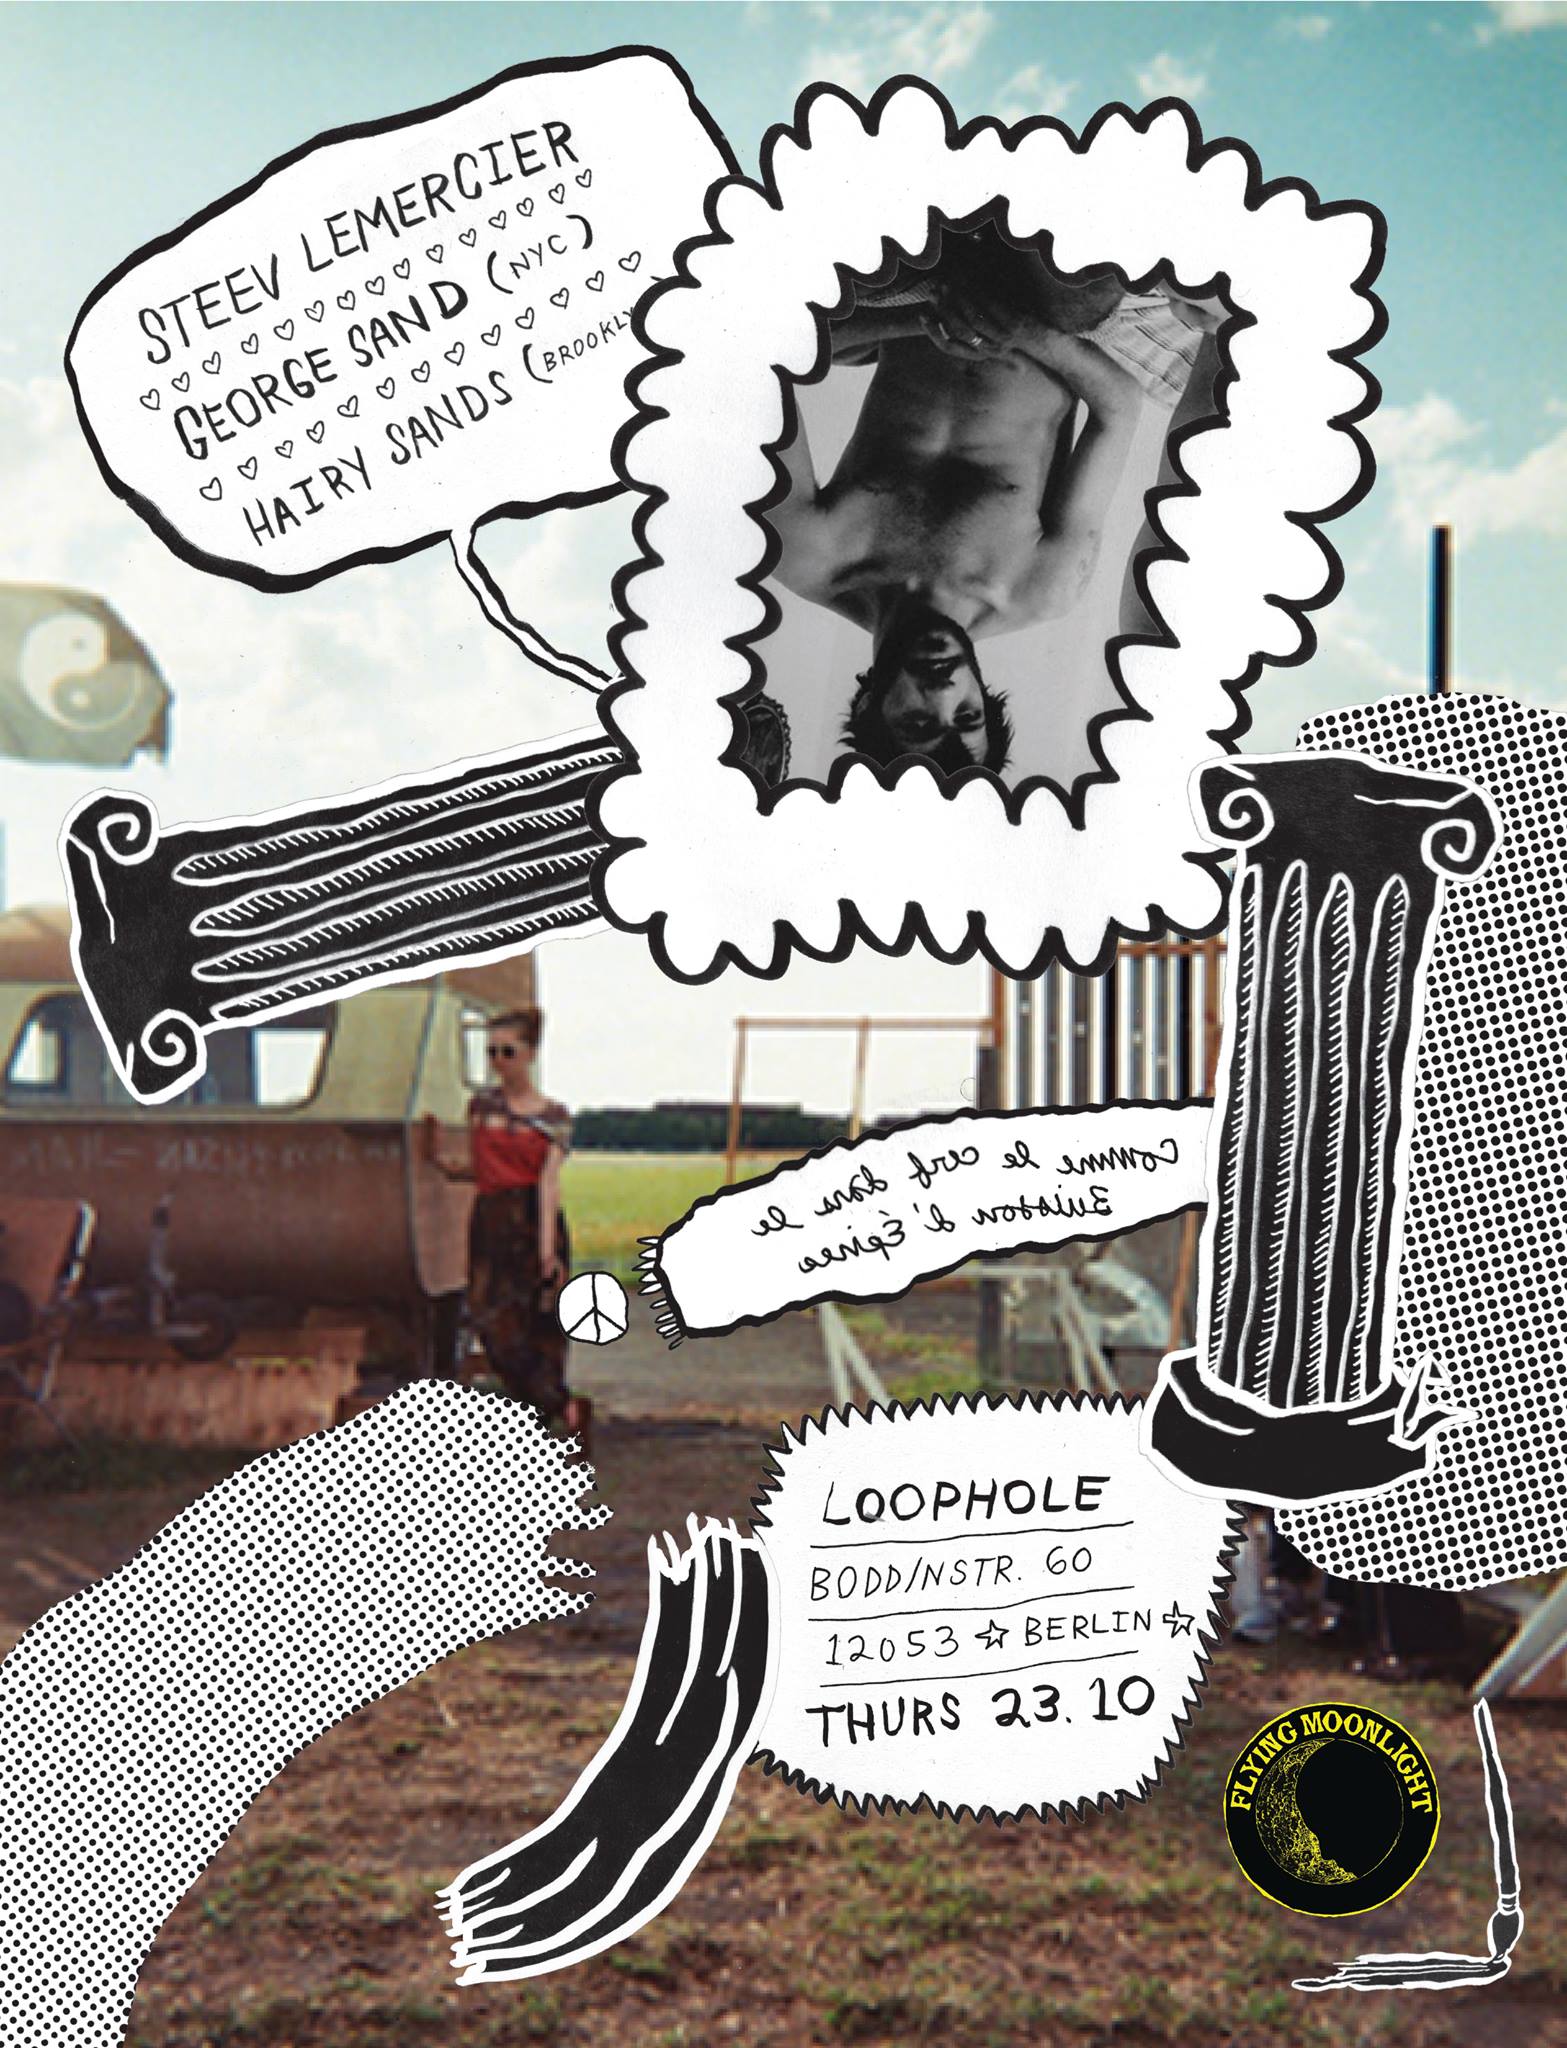 STEEV LEMERCIER
GEORGE SAND (NYC)
HAIRY SANDS (BROOKLY
Comme le cerf dans le
Buisson d'Épines
LOOPHOLE
BODDINSTR. 60
12053 ☆ BERLIN ☆
THURS 23.10
FLYING MOONLIGHT